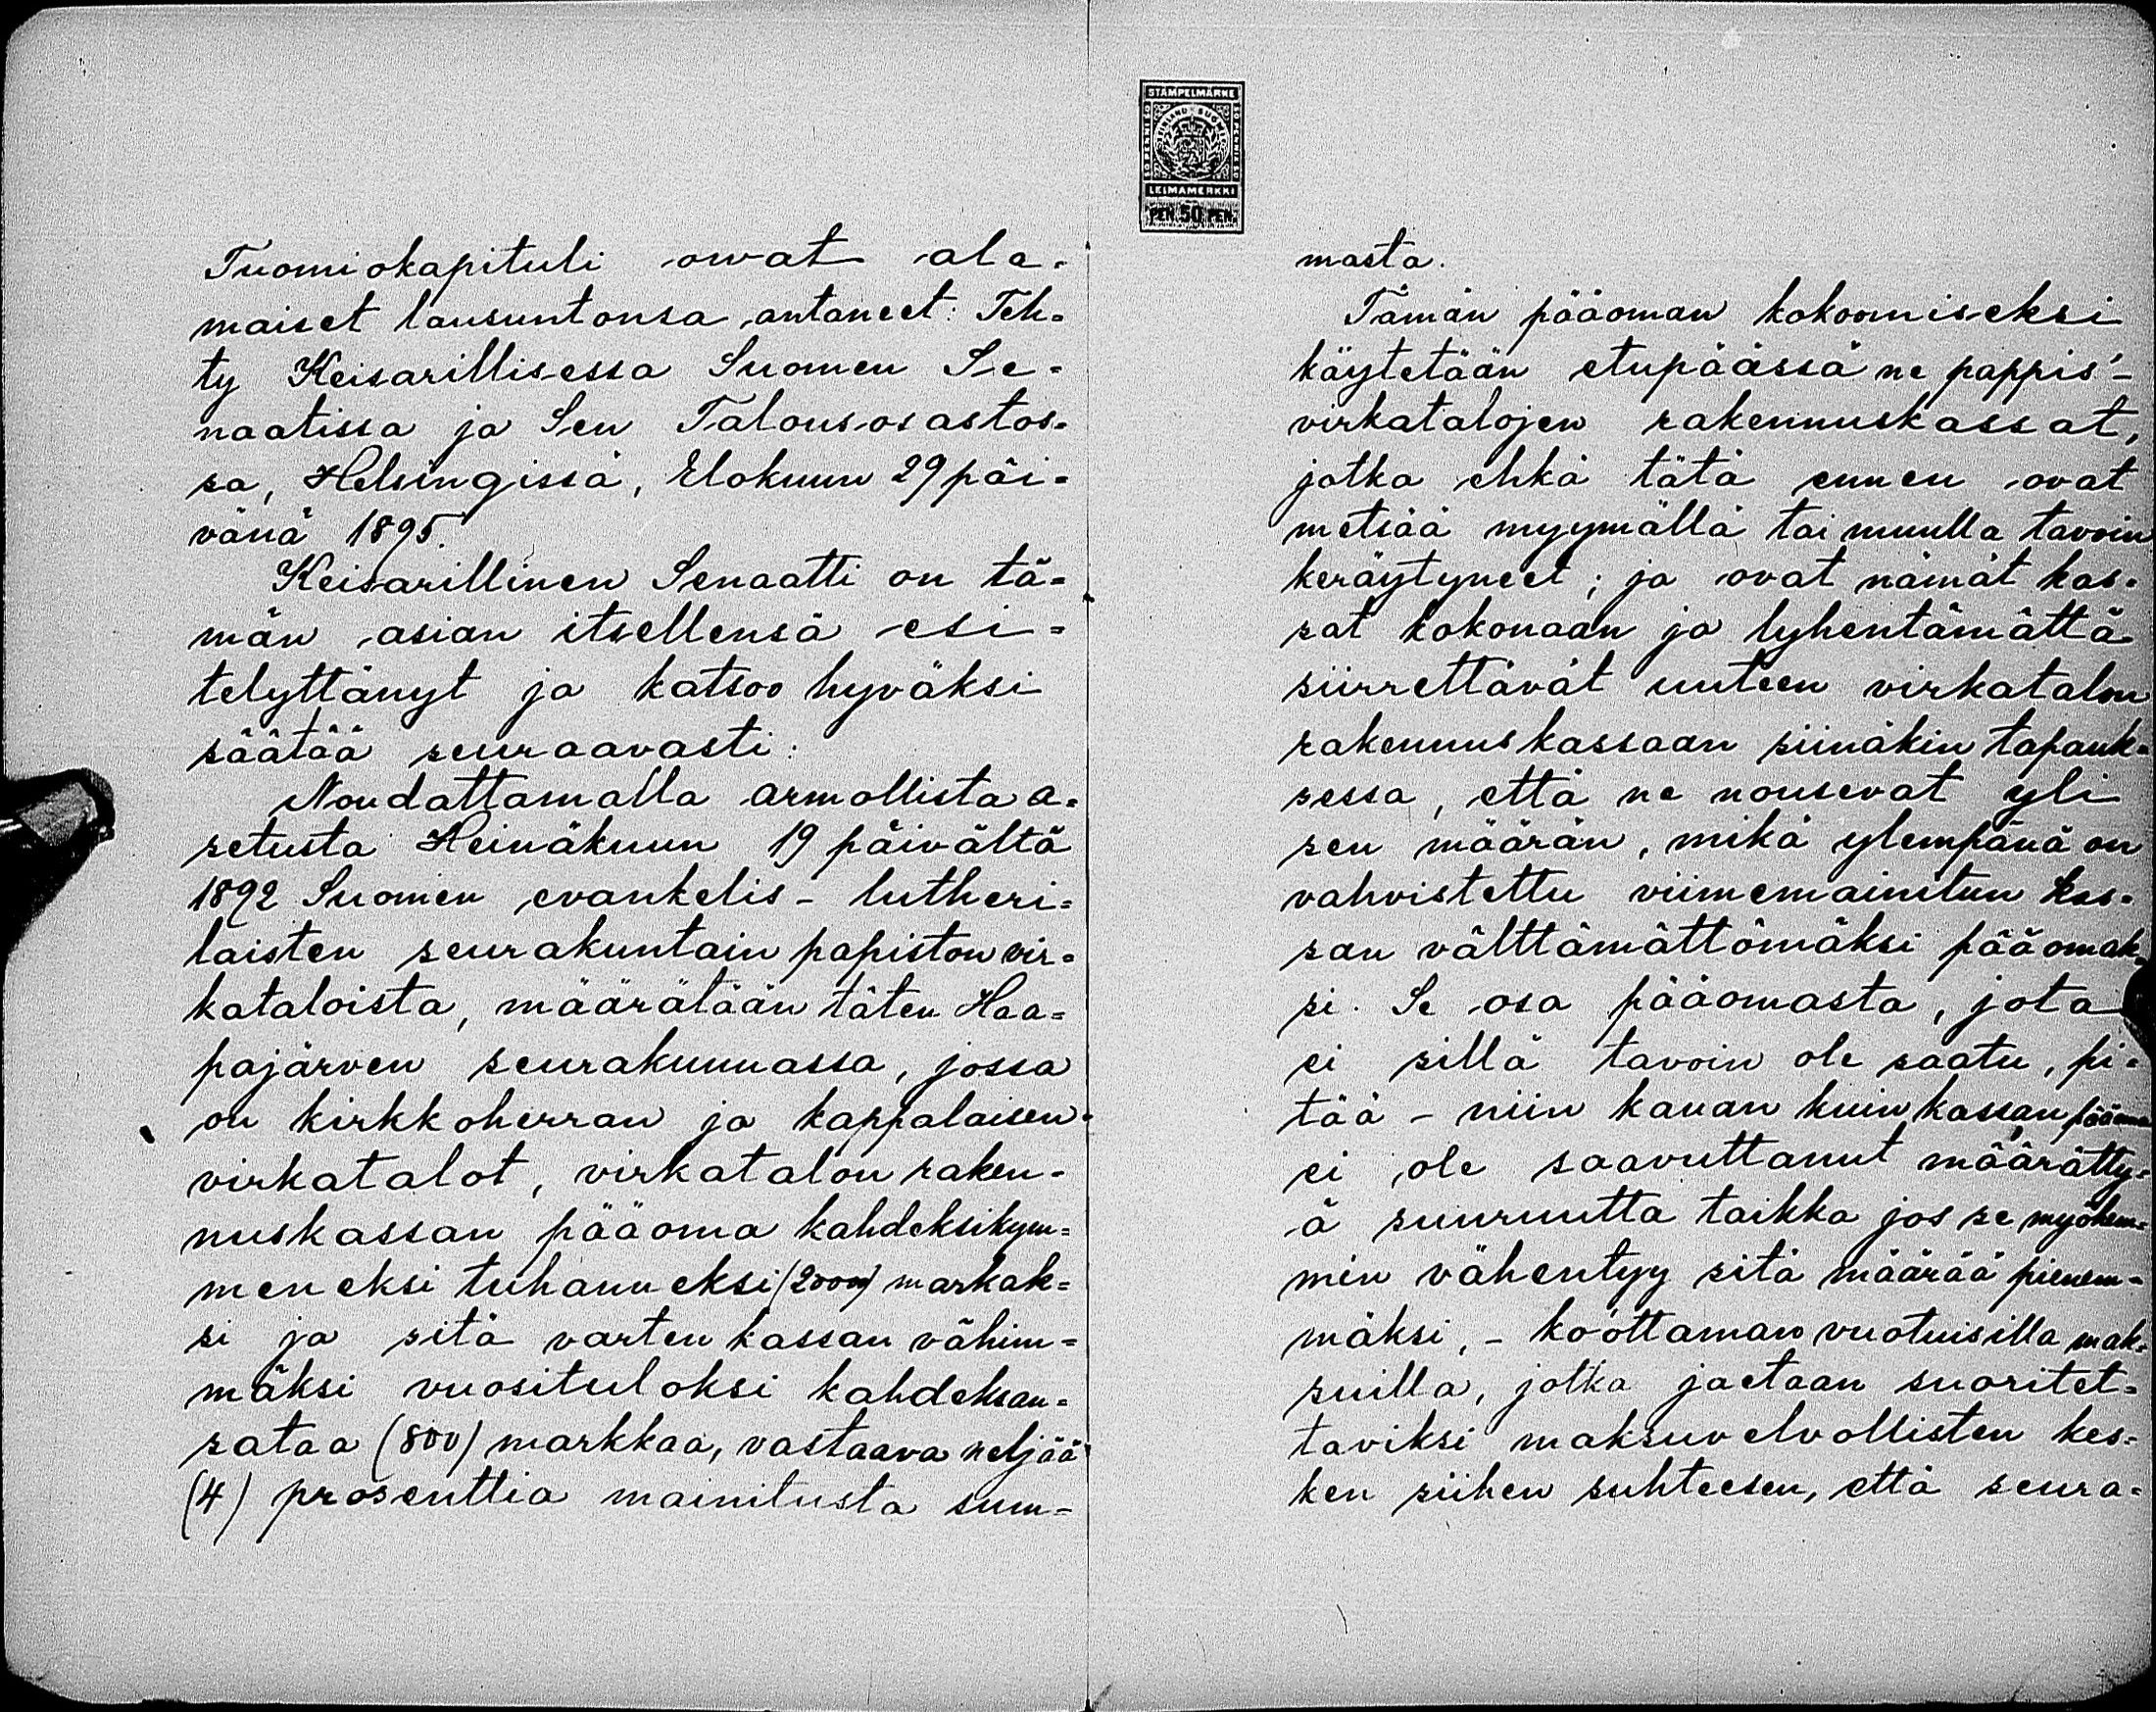 Tuomiokapituli owat ala=
maiset lausuntonsa antaneet: Teh=
ty Keisarillisessa Suomen Se=
naatissa ja Sen Talousosastos=
sa, Helsingissä, Elokuun 29 päi=
vänä 1895.
Keisarillinen Senaatti on tä=
män asian itsellensä esi=
telyttänyt ja katsoo hyväksi
säätää seuraavasti:
Noudattamalla armollista a=
setusta Heinäkuun 19 päivältä
1892 Suomen evankelis-lutheri=
laisten seurakuntain papiston vir=
kataloista, määrätään täten Haa=
pajärven seurakunnassa, jossa
on kirkkoherran ja kappalaisen
virkatalot, virkatalon raken-
nuskassan pääoma kahdeksikym=
meneksi tuhanneksi (20000) markak=
si ja sitä varten kassan vähim=
mäksi vuosituloksi kahdeksan=
sataa (800) markkaa, vastaava neljää
(4) prosenttia mainitusta sum=
STÄMPELMÄRKE
FINLAND SUOMI
LEIMAMERKKI
PEN. 50 PEN.
masta.
Tämän pääoman kokoomiseksi
käytetään etupäässä ne pappis-
virkatalojen rakennuskassat,
jotka ehkä tätä ennen ovat
metsää myymällä tai muulla tavoin
keräytyneet; ja ovat nämät kas=
sat kokonaan ja lyhentämättä
siirrettävät uuteen virkatalon
rakennuskassaan siinäkin tapauk=
sessa, että ne nousevat yli
sen määrän, mikä ylempänä on
vahvistettu viimemainitun kas=
san välttämättömäksi pääomak=
si. Se osa pääomasta, jota
ei sillä tavoin ole saatu, pi=
tää - niin kauan kuin kassan pääoma
ei ole saavuttanut määrätty=
ä suuruutta taikka jos se myöhem=
min vähentyy sitä määrää pienem=
mäksi, - koottaman vuotuisilla mak=
suilla, jotka jaetaan suoritet=
taviksi maksuvelvollisten kes=
ken siihen suhteesen, että seura=